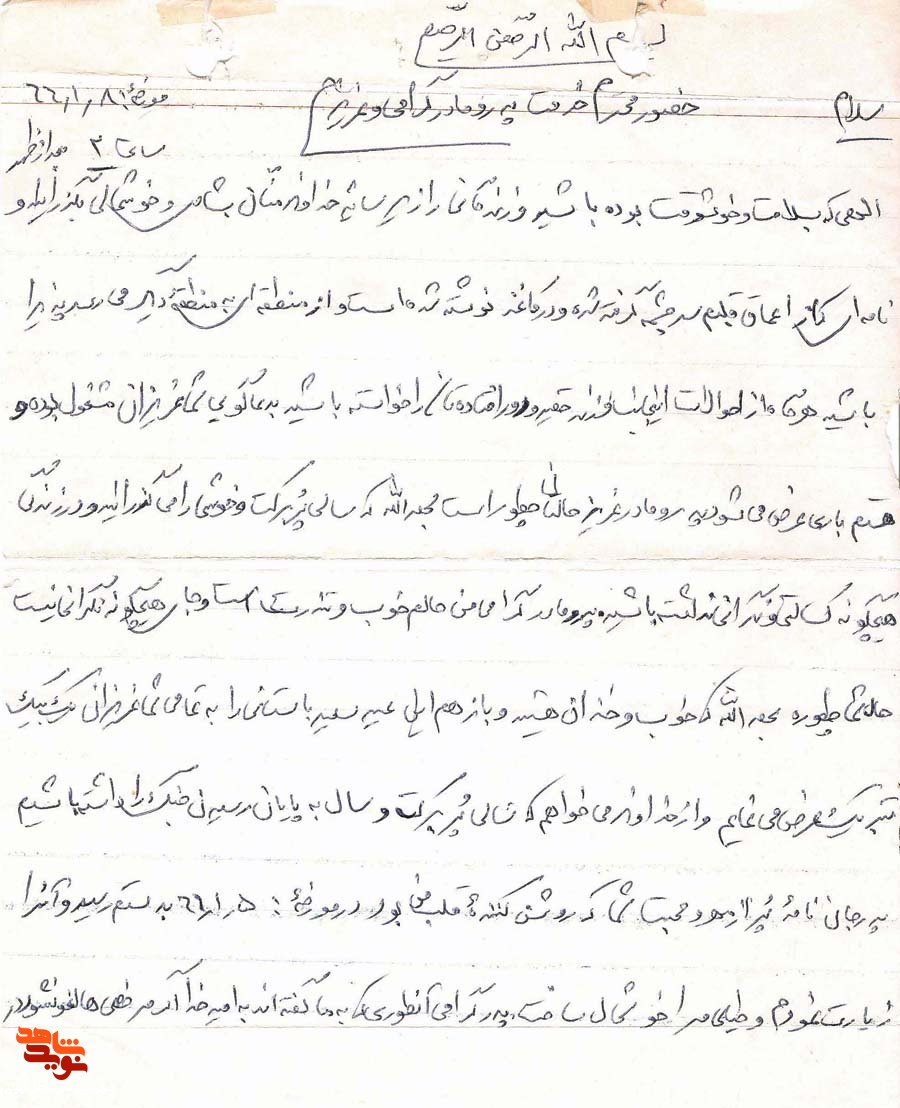 بسم الله الرحمن الرحیم
سلام حضور محترم خدمت پدر و مادر گرامی و عزیزم مورخه ۶۶٫۱٫۸
ساعت ۳ بعدازظهر
الهی که بسلامت و خوشوقت بوده باشید و زندگانی را زیر سایه خداوند منان بشادی و خوشحالی بگذرانید و
نامه ای که از اعماق قلبم سرچشمه گرفته شده و در کاغذ نوشته شده است و از منطقه ای به منطقه دیگر می رسد پذیرا
باشید هرگاه از احوالات اینجانب فرزند حقیر و دور افتاده تان را خواسته باشید بدعاگویی شما عزیزان مشغول بوده و
هستم باری عرض می شود پدر و مادر عزیز حالتان چطور است بحمدالله که سالی پُربرکت و خوشی را می گذرانید و در زندگی
هیچگونه کسالتی و نگرانی نداشته باشید، پدر و مادر گرامی من حالم خوب و تندرست است و جای هیچگونه نگرانی نیست
حال شما چطوره بحمدالله که خوب و خندان هستید و باز هم عید سعید باستانی را به تمامی شما عزیزان یک یک
تبریک عرض می نمایم و از خداوند می خواهم که سالی پُربرکت و سال به پایان رسیدن جنگ را داشته باشیم
پدرجان نامهٔ پُر از مهر و محبت شما که روشن کنندهٔ قلب من بود در مورخهٔ: ۶۶٫۱٫۵ بدستم رسید و آنرا
زیارت نمودم و خیلی مرا خوشحال ساخت، پدر گرامی آنطوری که به ما گفته اند به امید خدا اگر مرخصی ها لغو نشود در
شاهد
نوید